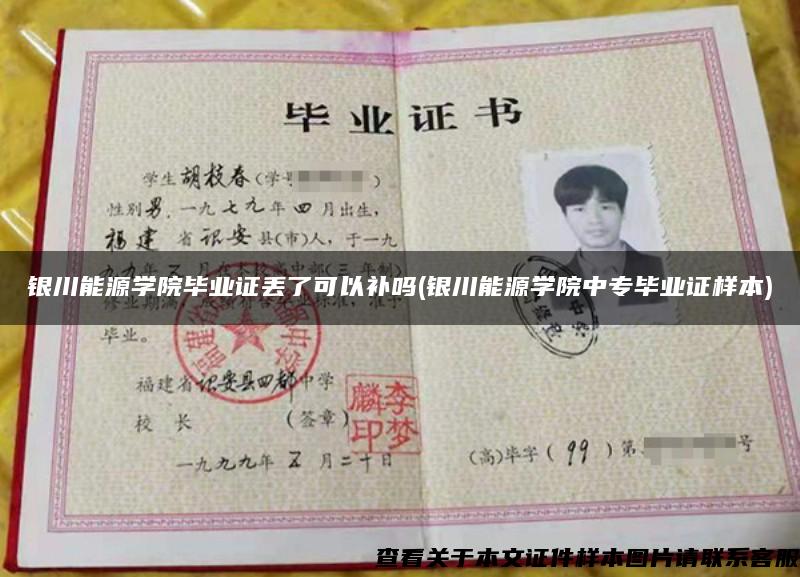 毕业证书
学生胡枝春(学号 )
性别男,一九七九年四月出生,
福建省诏安县(市)人,于一九
银川能源学院毕业证丢了可以补吗(银川能源学院中专毕业证样本)
毕业。
福建省诏安县四都中学
校 长 (签章)
李梦麟印
一九九九年五月二十日
(高)毕字(99)第 号
查看关于本文证件样本图片请联系客服